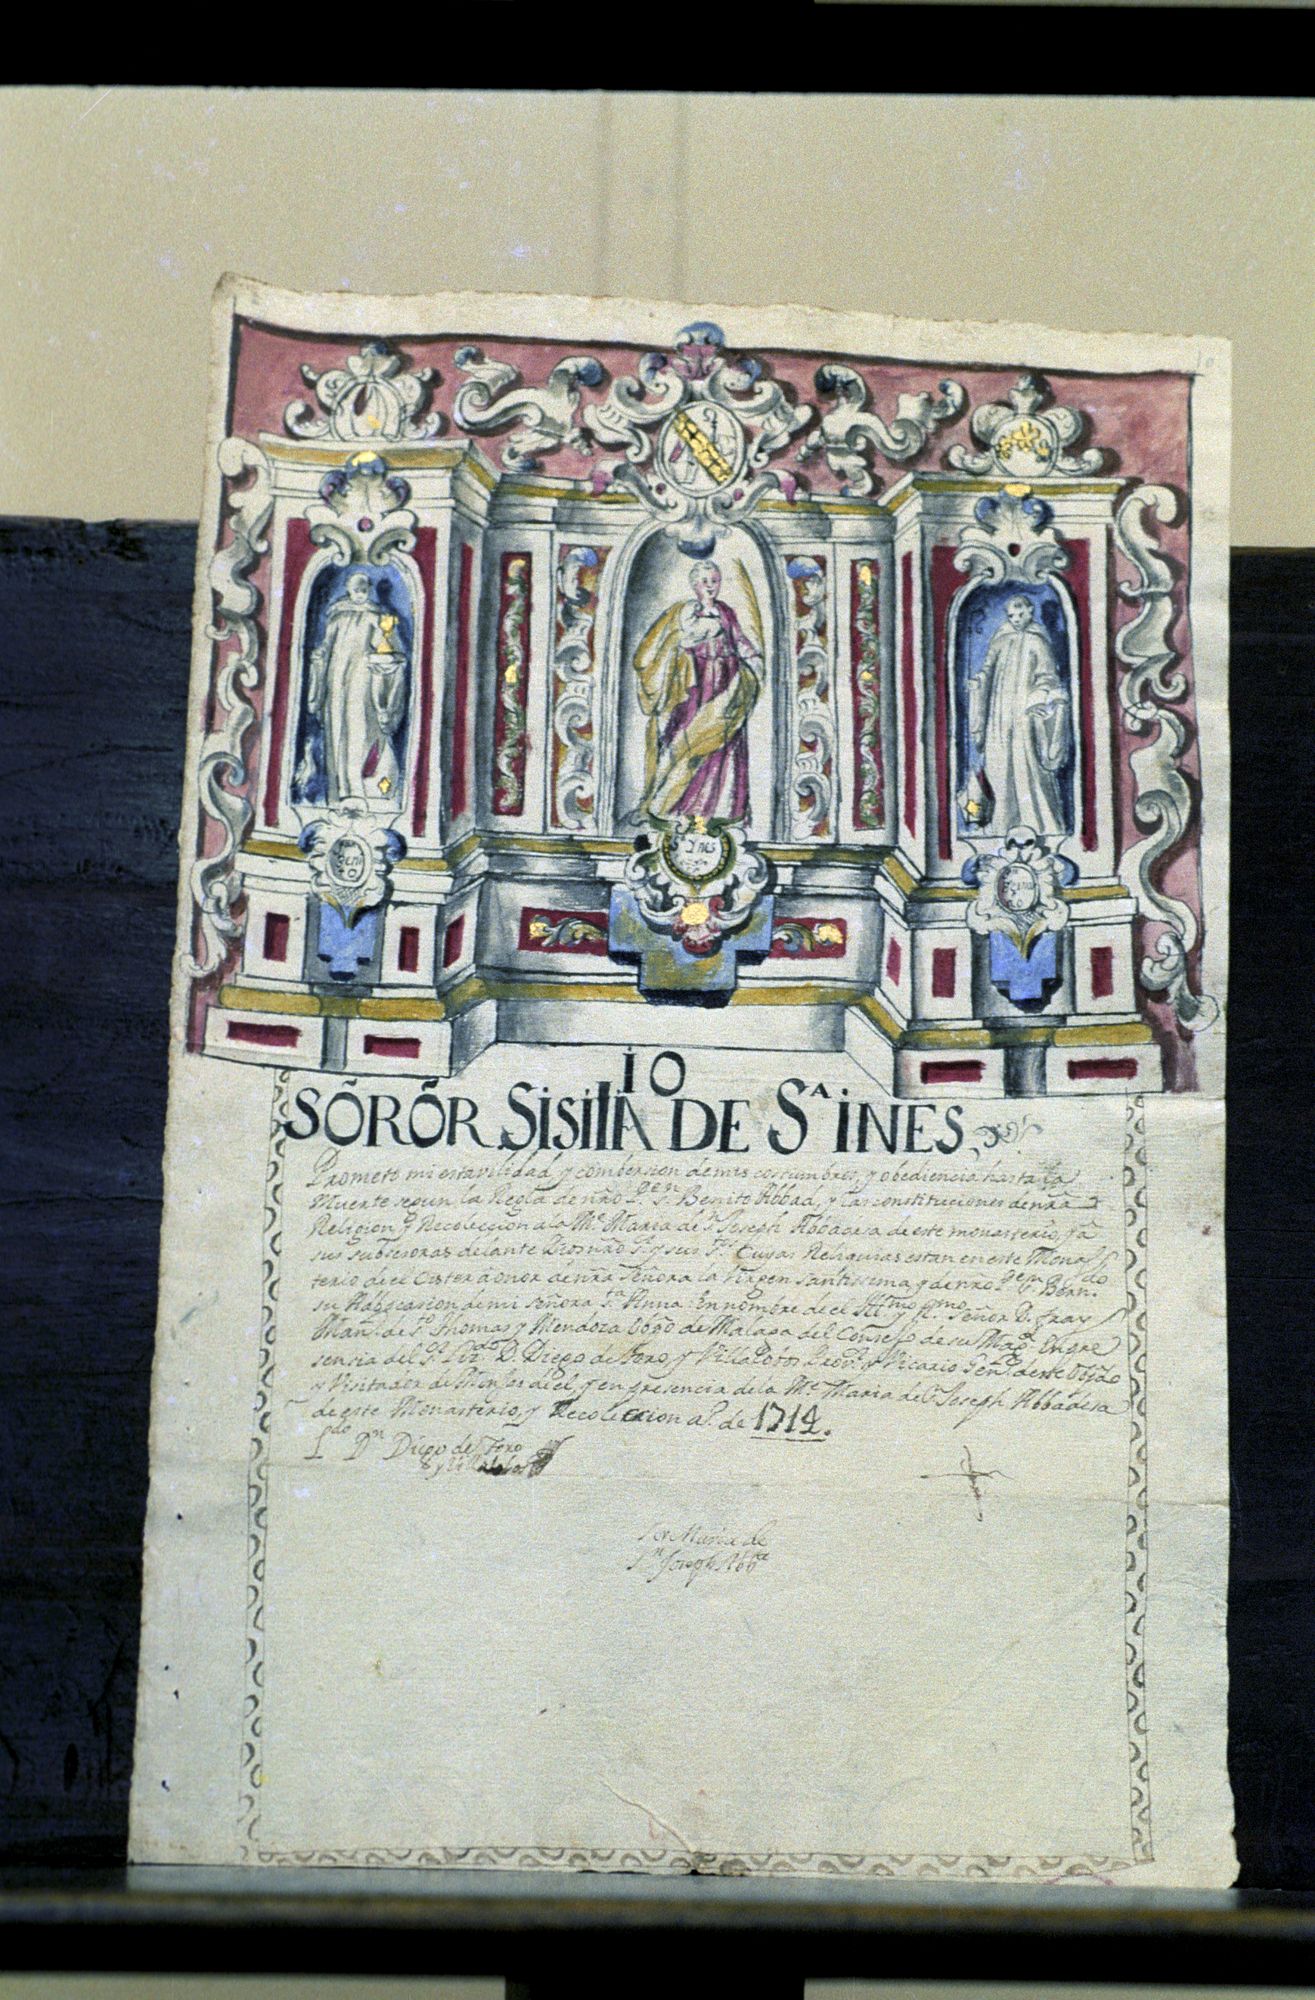 S INES
io
SŌRŌR SisiliA DE Sᴬ iNES
Prometo mi estavilidad y combersion demis costumbres, y obediencia hasta la
Muerte segun la Regla de nrō Pe Sn Benito Abbad, y las constituciones denrā
Religion y Recoleccion ala Me Maria de Sn Joseph Abbadesa de este monasterio, ya
sus subsesoras delante Dios nrō Sr y sus Stos Cuyas Reliquias estan en este Monas
terio de el Cister á onor denrā Señora la Virgen Santissima y denro Pe Sn Bern.do
su Abbocasion demi señora Sta Anna: En nombre de el Illmo y Rmo Señor D. fray
Manl. de Sto Thomas y Mendoza Obpō de Malaga del Consejo de su Magd. En pre
sensia del Sr. Lizdo. D. Diego de Toro, y Villalobos Provr. y Vicario Genl. deste Obpdo
y Visitador de Monjas de el, y en presencia dela Me. Maria de Sn Joseph Abbadesa
de este Monasterio, y Recoleccion aº. de 1714.
Ldo Dn Diego de Toro
y Villalobos
Sor Maria de
Sn Joseph Abba